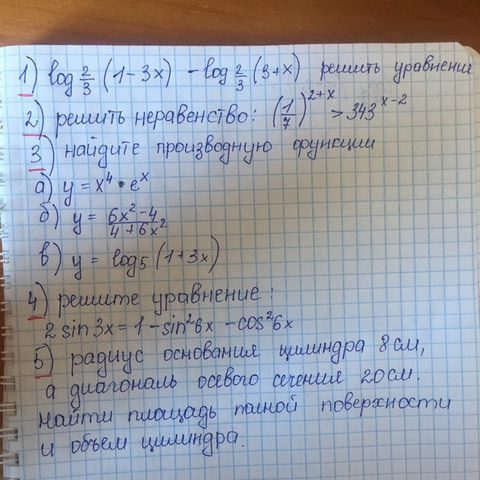 1) log 2/3 (1-3x) - log 2/3 (3+x) решить уравнение
2) решить неравенство: (1/7)^(2+x) > 343^(x-2)
3) найдите производную функции
а) y = x⁴ • eˣ
б) y = (6x²-4)/(4+6x²)
в) y = log₅ (1+3x)
4) решите уравнение:
2 sin 3x = 1 - sin²6x - cos²6x
5) радиус основания цилиндра 8 см,
а диагональ осевого сечения 20 см.
Найти площадь полной поверхности
и объем цилиндра.